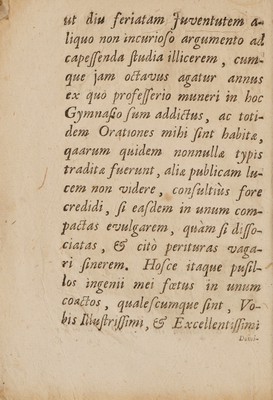 ut diu feriatam Juventutem a-
liquo non incurioso argumento ad
capessenda studia illicerem, cum-
que jam octavus agatur annus
ex quò professerio muneri in hoc
Gymnasio sum addictus, ac toti-
dem Orationes mihi sint habitæ,
qaarum quidem nonnullæ typis
traditæ fuerunt, aliæ publicam lu-
cem non videre, consultiùs fore
credidi, si easdem in unum com-
pactas evulgarem, quàm si disso-
ciatas, & citò perituras vaga-
ri sinerem. Hosce itaque pusil-
los ingenii mei fœtus in unum
coactos, qualescumque sint, Vo-
bis Illustrissimi, & Excellentissimi